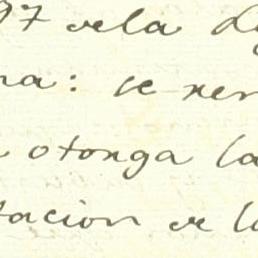 97 de la Ley
na: se ren
otonga la
tacion de la